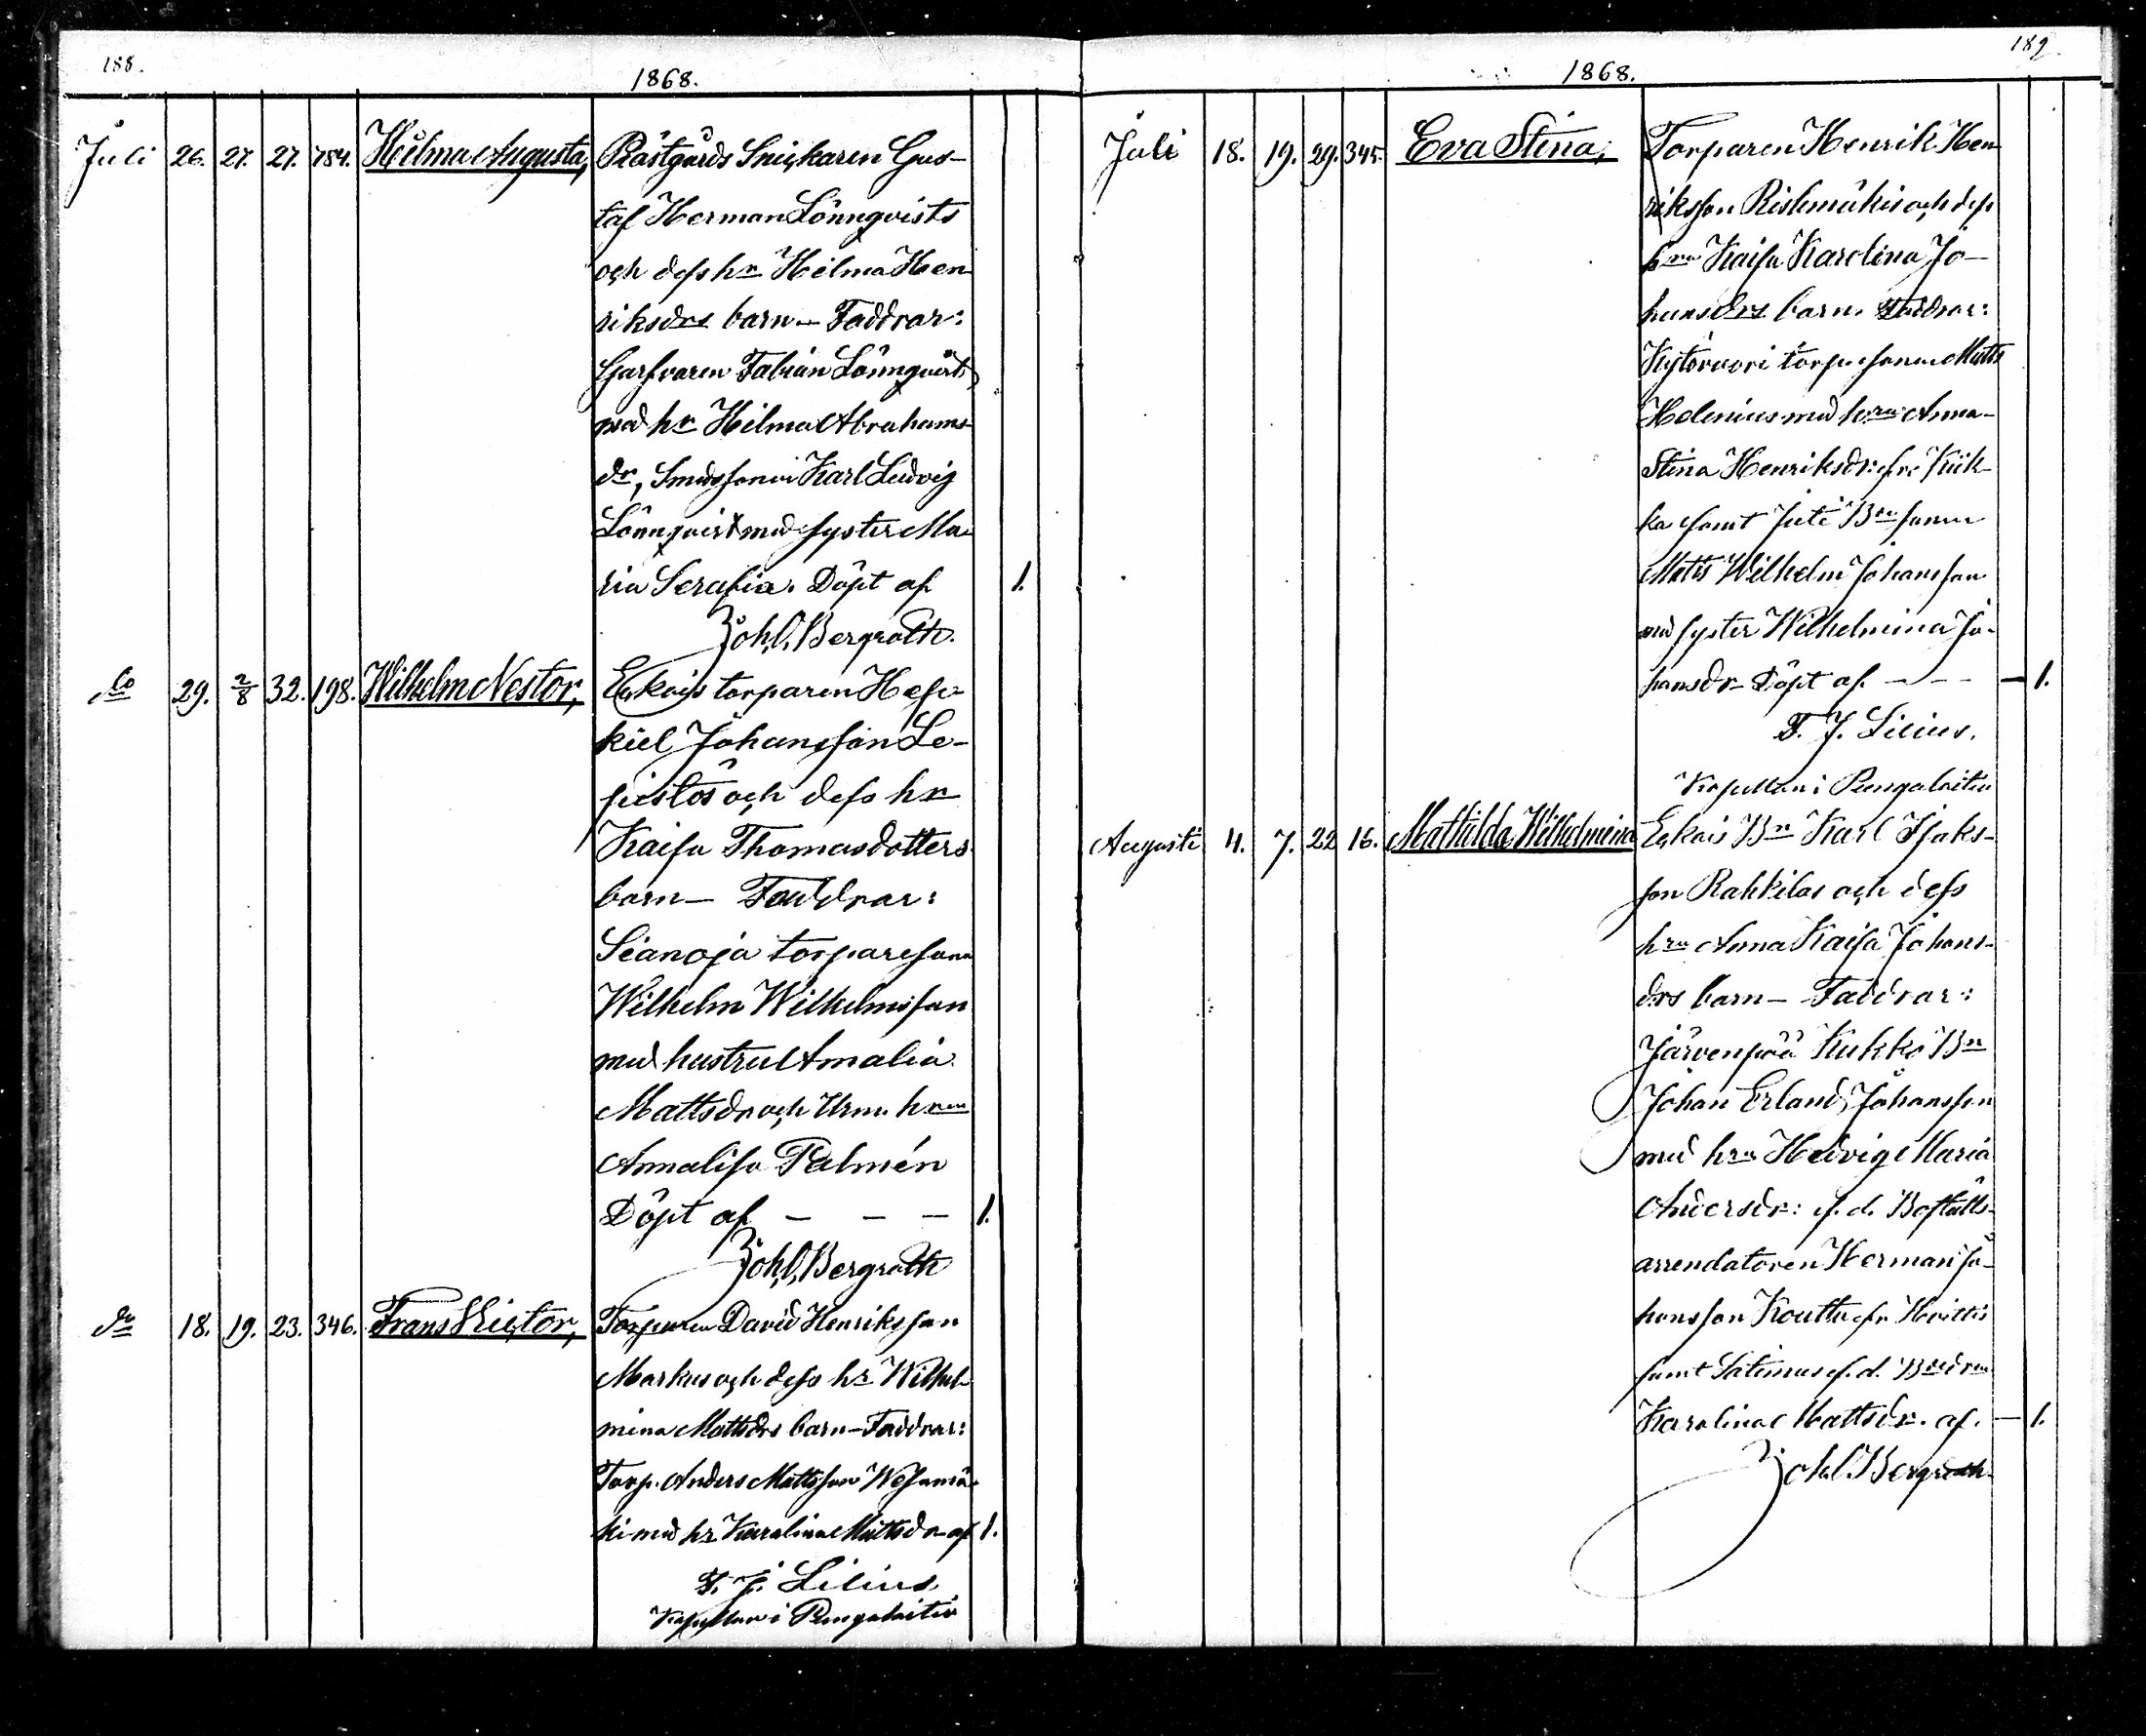 188.
1868.
Juli 26. 27. 27. 784. Hilma Augusta, Råstgårds Snickaren Gus-
taf Herman Lönnqvists
och dess hu Hilma Hen
riksdrs barn — Faddrar:
Garfvaren Fabian Lönnqvist
med hu Hilma Abrahams-
dr, Smedssonen Karl Ludvig
Lönnqvist med syster Ma-
ria Serafia. Döpt af 1.
Joh. Bergroth.
do 29. 2/8 32. 198. Wilhelm Nestor, torparen Hese-
kiel Johansson Le-
pistös och dess hu
Kaisa Thomasdotters
barn — Faddrar:
Sianoja torparesonen
Wilhelm Wilhelmsson
med hustru Amalia
Mattsdr och hrun
Annalisa Palmén
Döpt af — — — 1.
Joh. Bergroth
do 18. 19. 23. 346. Frans Victor, Torparen David Henriksson
Markus och dess hu Wilhel-
mina Mattsdrs barn — Faddrar:
Torp. Anders Mattsson Wesamä-
ki med hu Karolina Mattsdr af 1.
F. J. Lilius
Kapellan i Pungalaitio
189
1868.
Juli 18. 19. 29. 345. Eva Stina, Torparen Henrik Hen-
riksson Ristimäkis och dess
hru Kaisa Karolina Jo-
hansdrs barn. Faddrar:
torparesonen Matts
Helenius med hru Anna-
Stina Henriksdr frå Kiik-
ka samt Juti Bn sonen
Matts Wilhelm Johansson
med syster Wilhelmina Jo-
hansdr Döpt af — — — 1.
F. J. Lilius.
Kapellan i Pungalaitio
Augusti 4. 7. 22 16. Mathilda Wilhelmina Bn Karl Isaks-
son Rahkilas och dess
hru Anna Kaisa Johans-
drs barn — Faddrar:
Järvenpää Kukko Bn
Johan Erland Johansson
med hru Hedvig Maria
Andersdr: f. d. Boställs-
arrendatoren Herman Jo-
hansson Kouttu fr Hvittis
samt f. d.
Karolina Mattsdr. af. — 1.
Joh. Bergroth